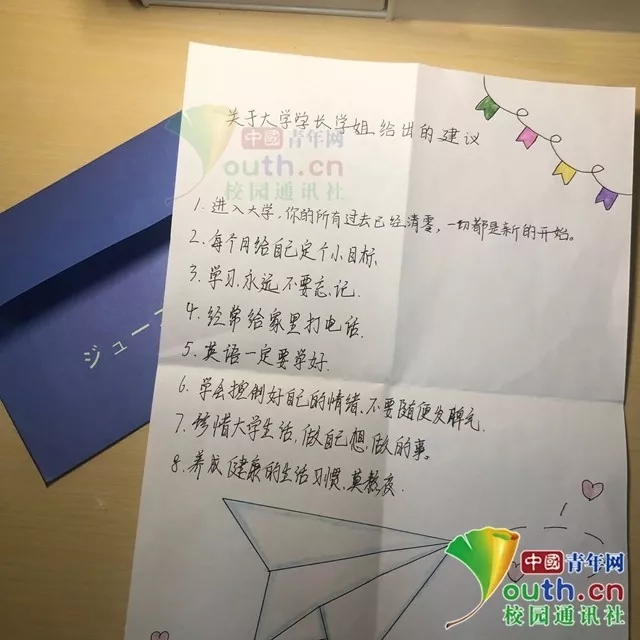 关于大学学长学姐给出的建议
中國青年网
outh.cn
校园通讯社
1. 进入大学,你的所有过去已经清零,一切都是新的开始。
2. 每个月给自己定个小目标.
3. 学习永远不要忘记.
4. 经常给家里打电话.
5. 英语一定要学好.
6. 学会控制好自己的情绪,不要随便发脾气.
7. 珍惜大学生活,做自己想做的事。
8. 养成健康的生活习惯,莫熬夜.
ジュー
中國青年网
outh.cn
校园通讯社